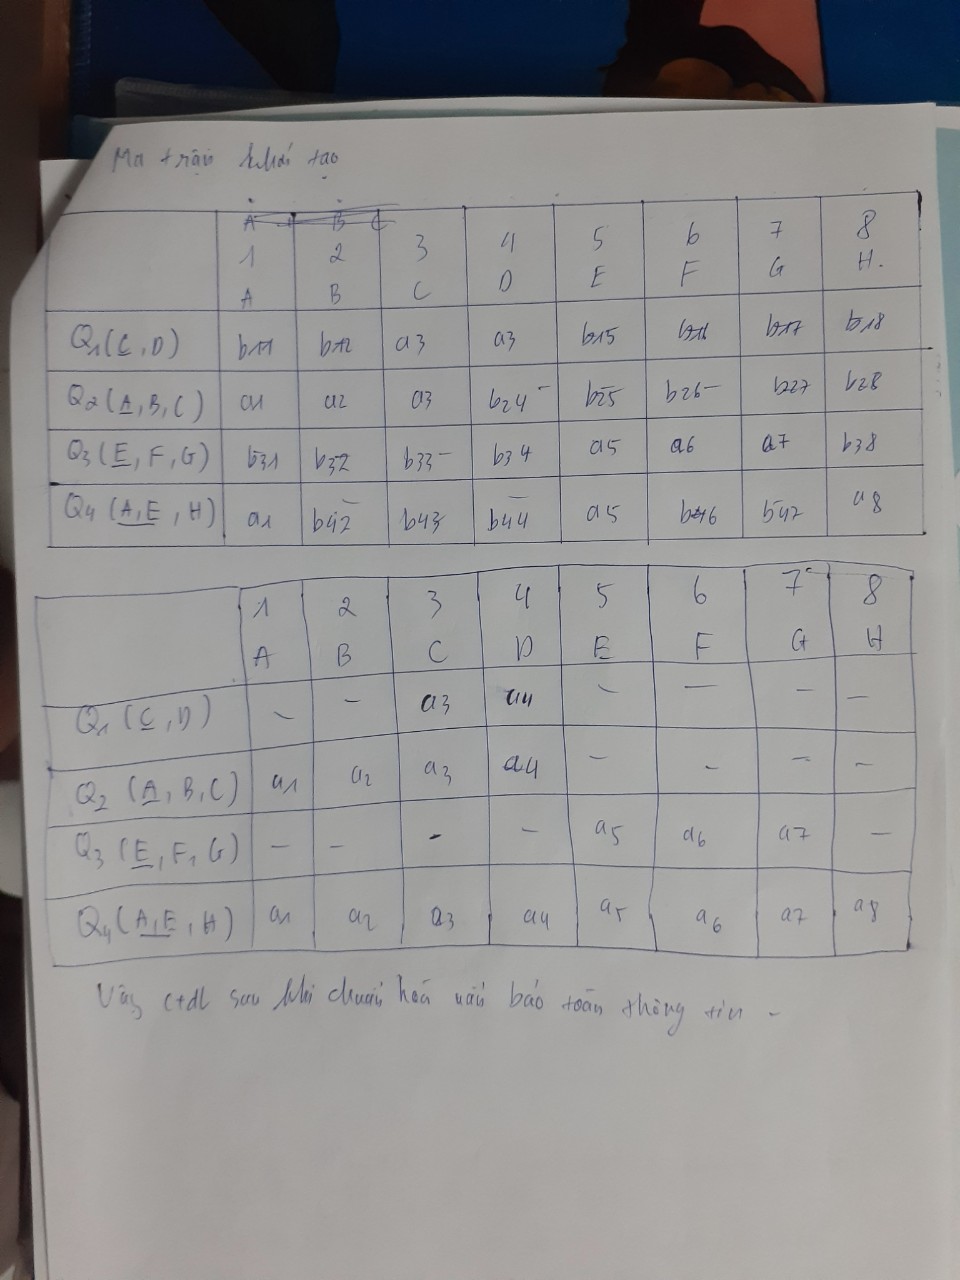 Ma trận khởi tạo
A B C
1 2 3 4 5 6 7 8
A B C D E F G H.
Q1(C, D) b11 b12 a3 a3 b15 b16 b17 b18
Q2(A, B, C) a1 a2 a3 b24 b25 b26 b27 b28
Q3(E, F, G) b31 b32 b33 b34 a5 a6 a7 b38
Q4(A, E, H) a1 b42 b43 b44 a5 b46 b47 a8
1 2 3 4 5 6 7 8
A B C D E F G H
Q1(C, D) - - a3 a4 - - - -
Q2(A, B, C) a1 a2 a3 a4 - - - -
Q3(E, F, G) - - - - a5 a6 a7 -
Q4(A, E, H) a1 a2 a3 a4 a5 a6 a7 a8
Vậy ctdl sau khi chuẩn hoá vẫn bảo toàn thông tin -